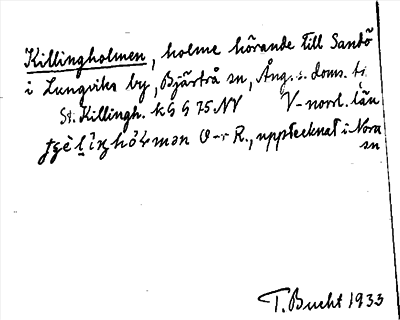 Killingholmen, holme hörande till Sandö
i Lungviks by, Bjärtrå sn, Ång. s. doms. ti
St. Killingh. kGG 75 NV V-norrl. län
O-r R., upptecknat i Nora
sn
T. Bucht 1933